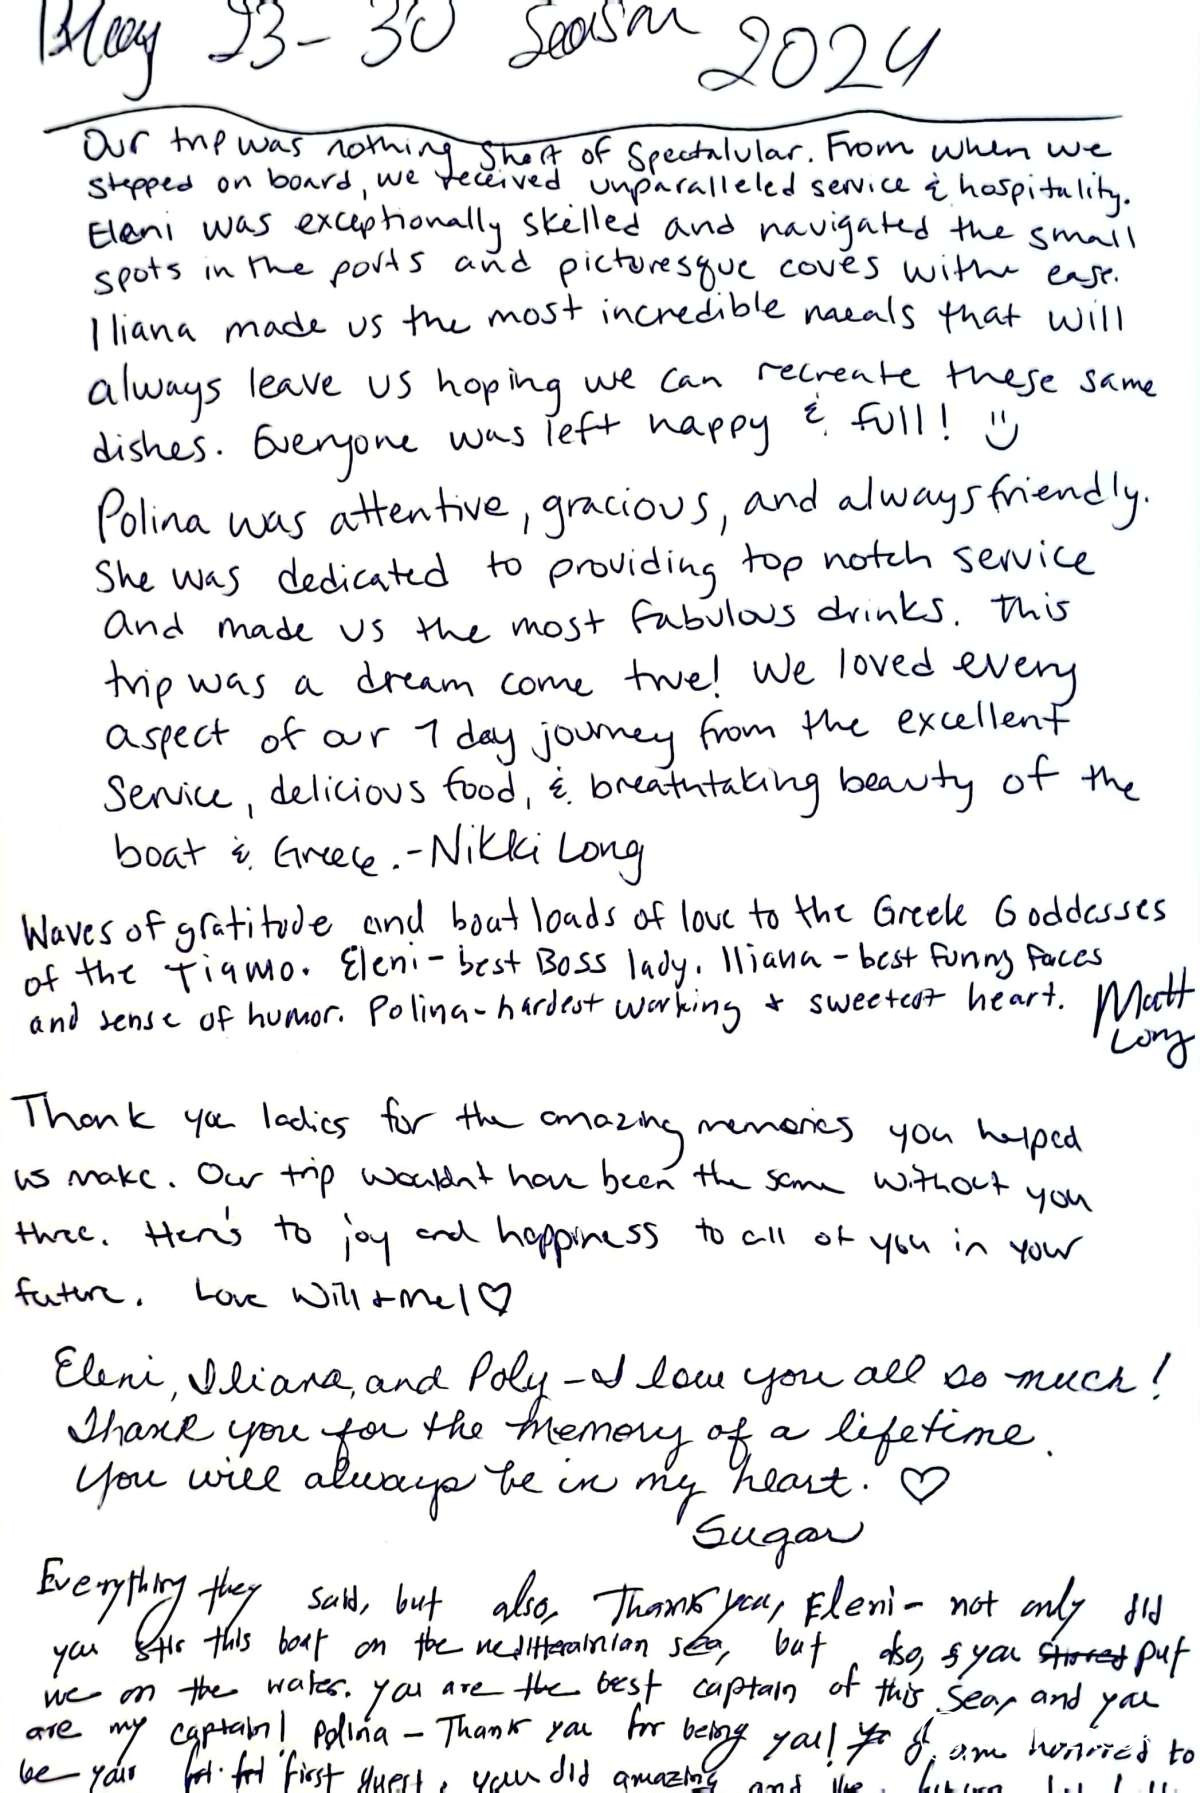 May 23-30 Season 2024
Our trip was nothing short of Spectalular. From when we
stepped on board, we received unparalleled service & hospitality.
Eleni was exceptionally skilled and navigated the small
spots in the ports and picturesque coves with ease.
Iliana made us the most incredible meals that will
always leave us hoping we can recreate these same
dishes. Everyone was left happy & full! :)
Polina was attentive, gracious, and always friendly.
She was dedicated to providing top notch service
and made us the most fabulous drinks. This
trip was a dream come true! We loved every
aspect of our 7 day journey from the excellent
Service, delicious food, & breathtaking beauty of the
boat & Greece. - Nikki Long
Waves of gratitude and boat loads of love to the Greek Goddesses
of the Tiamo. Eleni - best Boss lady. Iliana - best funny faces
and sense of humor. Polina - hardest working + sweetest heart. Matt
Long
Thank you ladies for the amazing memories you helped
us make. Our trip wouldn't have been the same without you
three. Here's to joy and happiness to all of you in your
future. Love Will + Mel ♡
Eleni, Iliana, and Poly - I love you all so much!
Thank you for the memory of a lifetime.
You will always be in my heart. ♡
Sugar
Everything they said, but also, Thank you, Eleni - not only did
you this boat on the sea, but also, you put
me on the water. you are the best captain of this sea, and you
are my captain! Polina - Thank you for being you! I am honored to
be your first guest. you did amazing and the